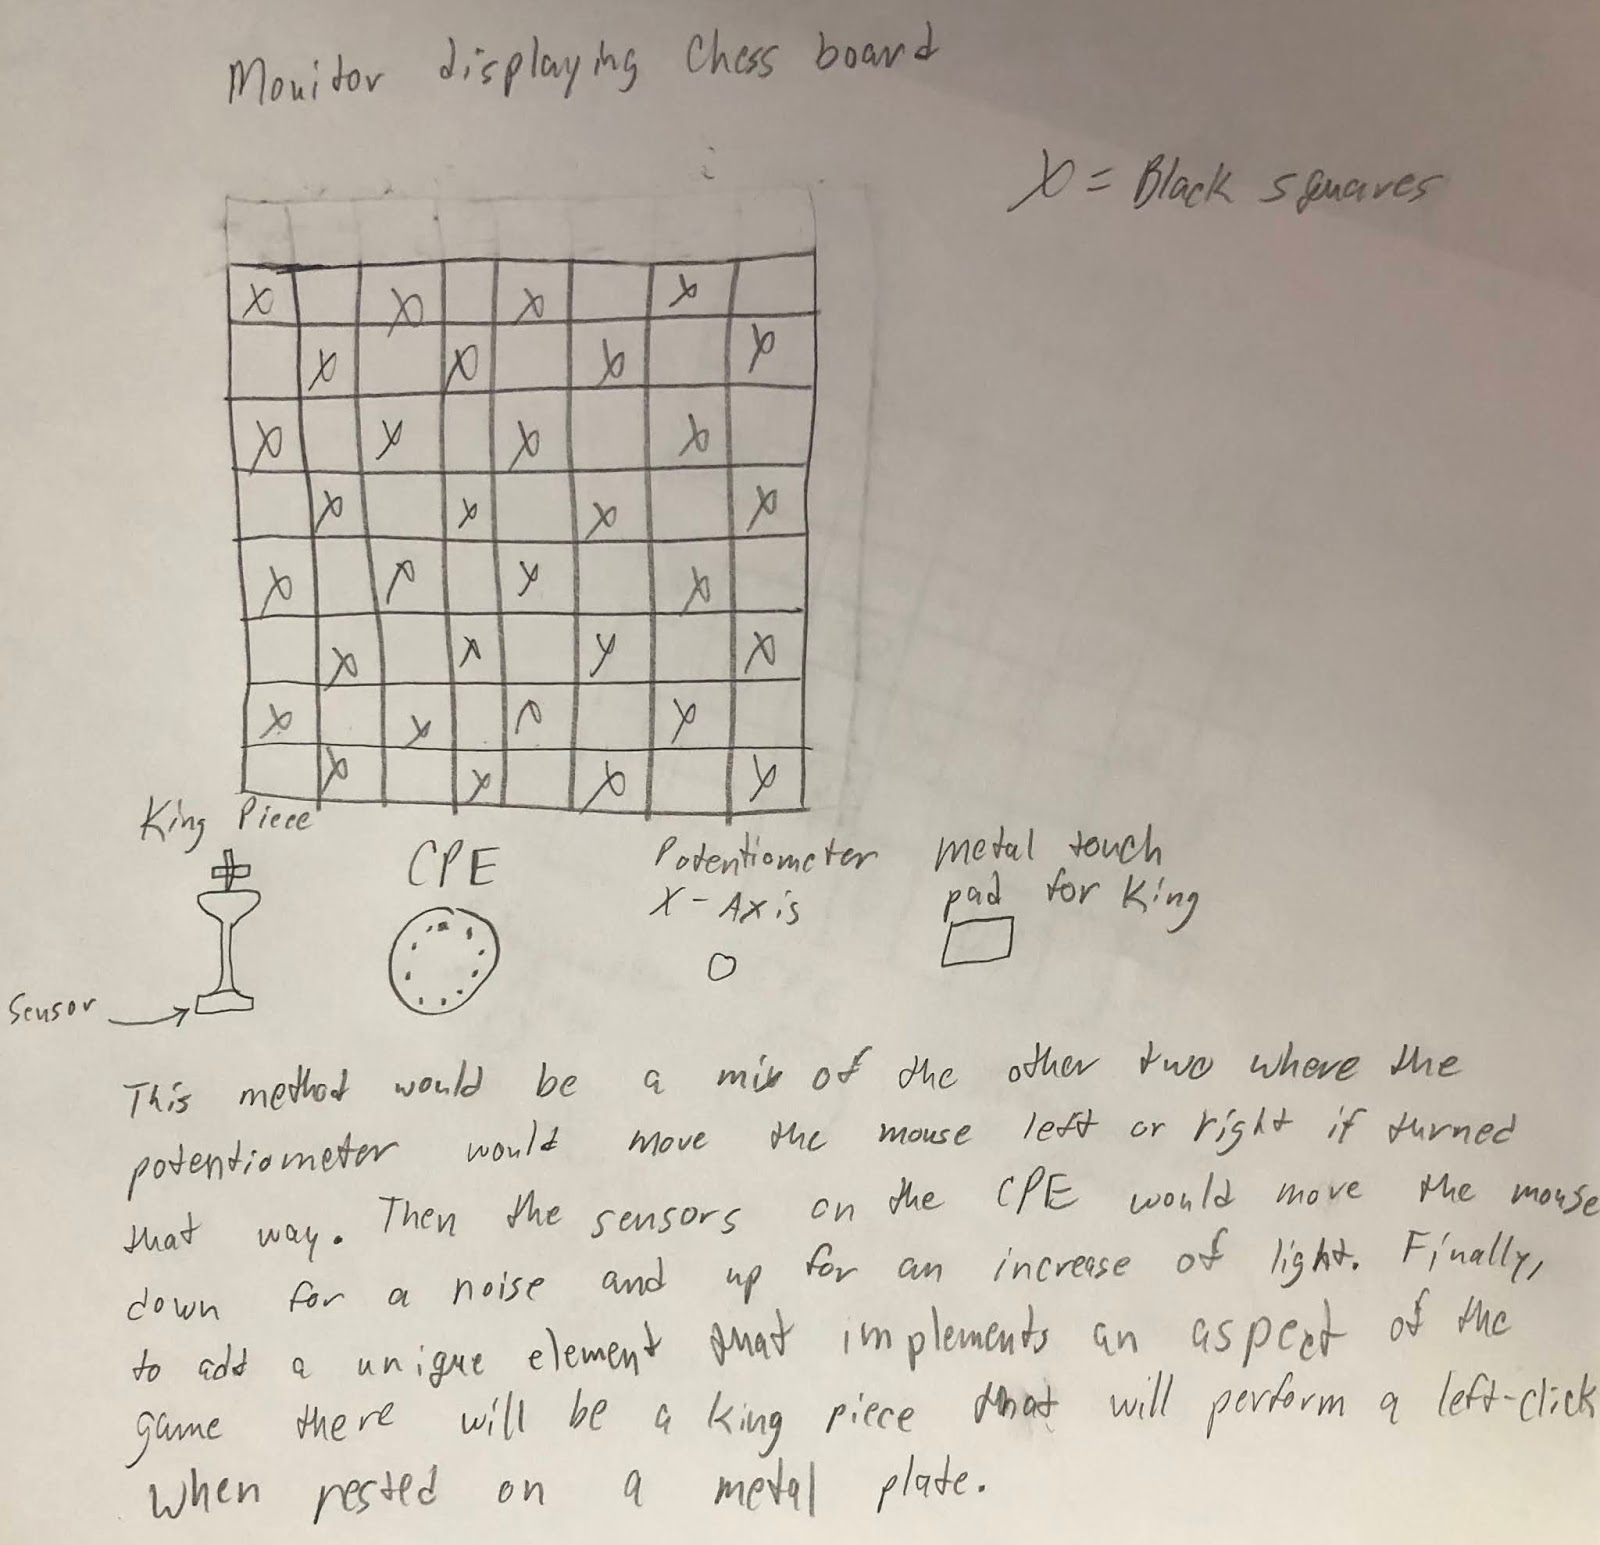 Monitor displaying Chess board
X = Black squares
X X X X
X X X X
X X X X
X X X X
X X X X
X X X X
X X X X
X X X X
King Piece
CPE
Potentiometer
X-Axis
metal touch
pad for King
Sensor
This method would be a mix of the other two where the
potentiometer would move the mouse left or right if turned
that way. Then the sensors on the CPE would move the mouse
down for a noise and up for an increase of light. Finally,
to add a unique element that implements an aspect of the
game there will be a king piece that will perform a left-click
when rested on a metal plate.